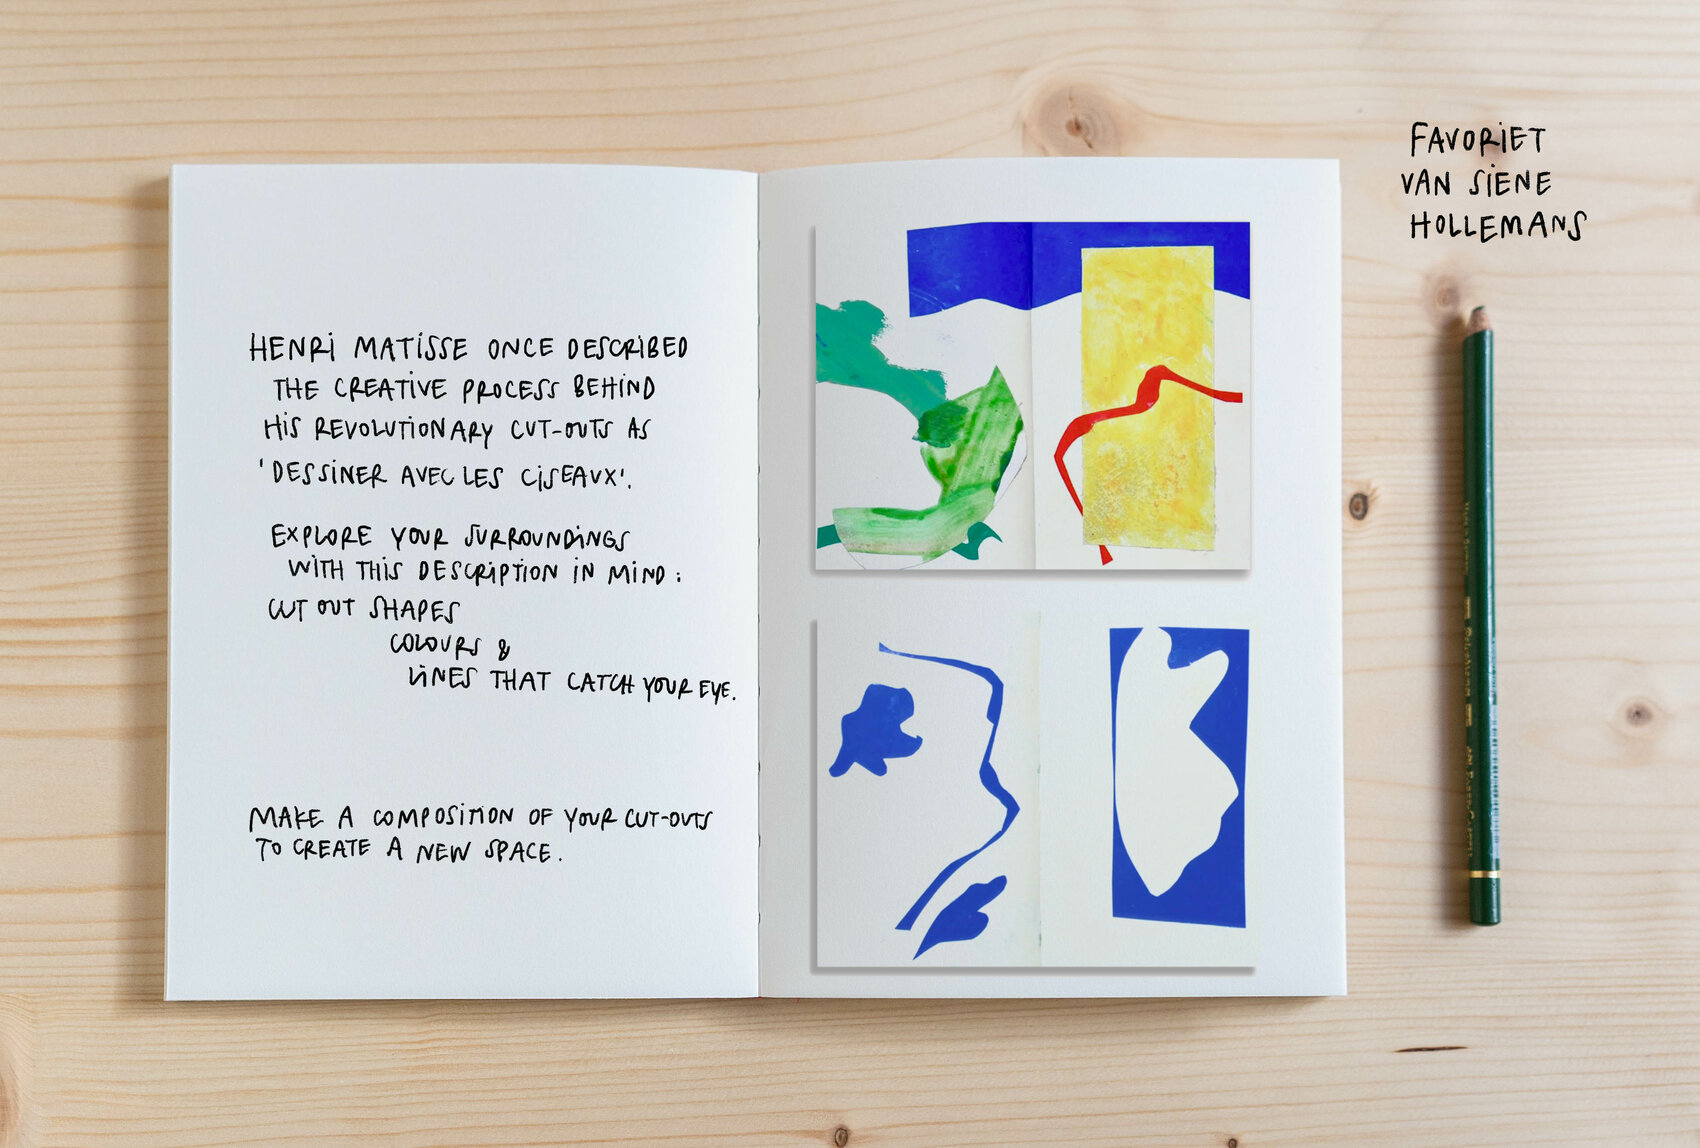 HENRI MATISSE ONCE DESCRIBED
THE CREATIVE PROCESS BEHIND
HIS REVOLUTIONARY CUT-OUTS AS
'DESSINER AVEC LES CISEAUX'.
EXPLORE YOUR SURROUNDINGS
WITH THIS DESCRIPTION IN MIND:
CUT OUT SHAPES
COLOURS &
LINES THAT CATCH YOUR EYE.
MAKE A COMPOSITION OF YOUR CUT-OUTS
TO CREATE A NEW SPACE.
FAVORIET
VAN SIENE
HOLLEMANS